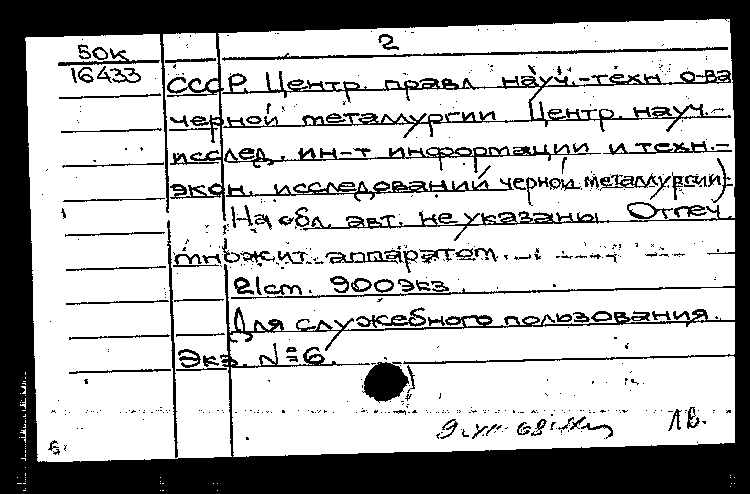 50к
16433
2
СССР. Центр. правл науч.-техн о-ва
черной металлургии Центр. науч.-
исслед. ин-т информации и техн.-
экон. исследований черной металлургии).
На обл. авт. не указаны. Отпеч.
множит. аппаратом.
21ст. 900экз.
Для служебного пользования.
Экз. №6.
68
ЛВ.
6.